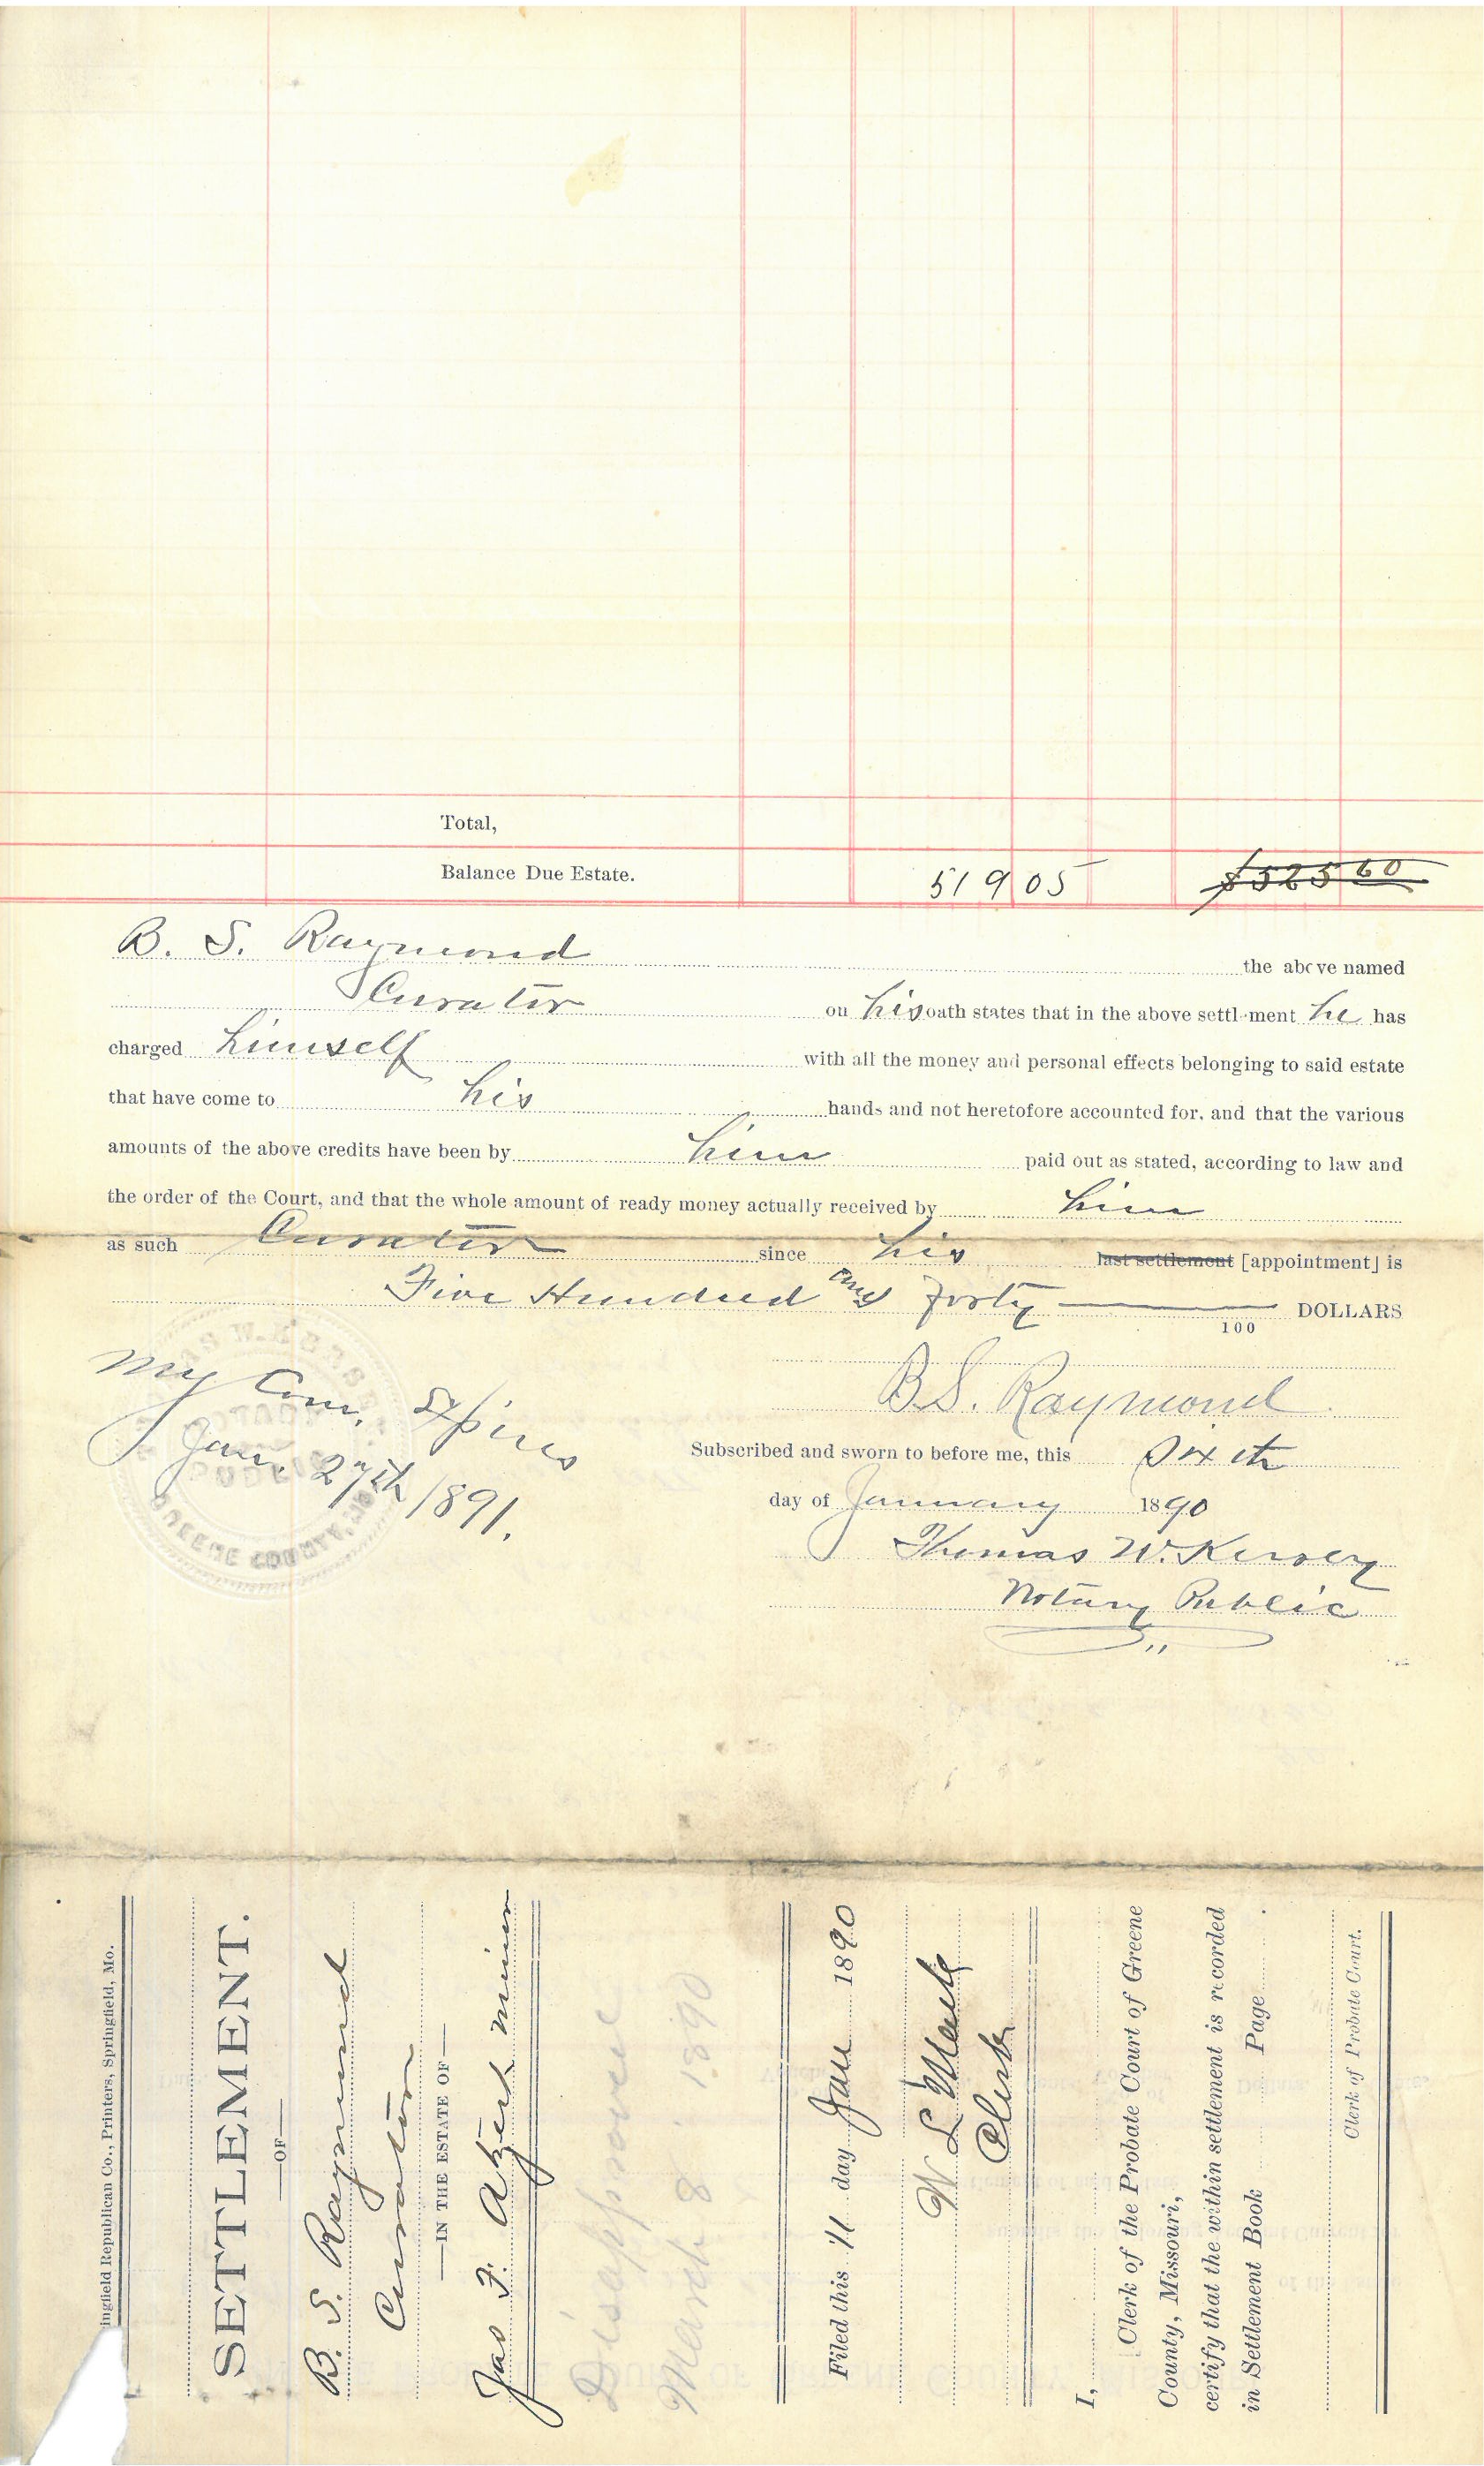 Total,
Balance Due Estate. 519 05 $525 60
B. S. Raymond the above named
Curator on his oath states that in the above settlement he has
charged himself with all the money and personal effects belonging to said estate
that have come to his hands and not heretofore accounted for, and that the various
amounts of the above credits have been by him paid out as stated, according to law and
the order of the Court, and that the whole amount of ready money actually received by him
as such Curator since his last settlement [appointment] is
Five Hundred and Forty DOLLARS
100
B.S. Raymond
My Com. Expires
Jan. 27th 1891.
Subscribed and sworn to before me, this Sixth
day of January 1890
Thomas W. Kersey
Notary Public
NOTARY
PUBLIC
GREENE COUNTY, MO.
ingfield Republican Co., Printers, Springfield, Mo.
SETTLEMENT.
—OF—
B. S. Raymond
Curator
—IN THE ESTATE OF—
Jas F. Atzert minor
Disapproved
March 8 1890
Filed this 11 day Jan 1890
W L
Clerk
I,
Clerk of the Probate Court of Greene
County, Missouri,
certify that the within settlement is recorded
in Settlement Book Page .
Clerk of Probate Court.